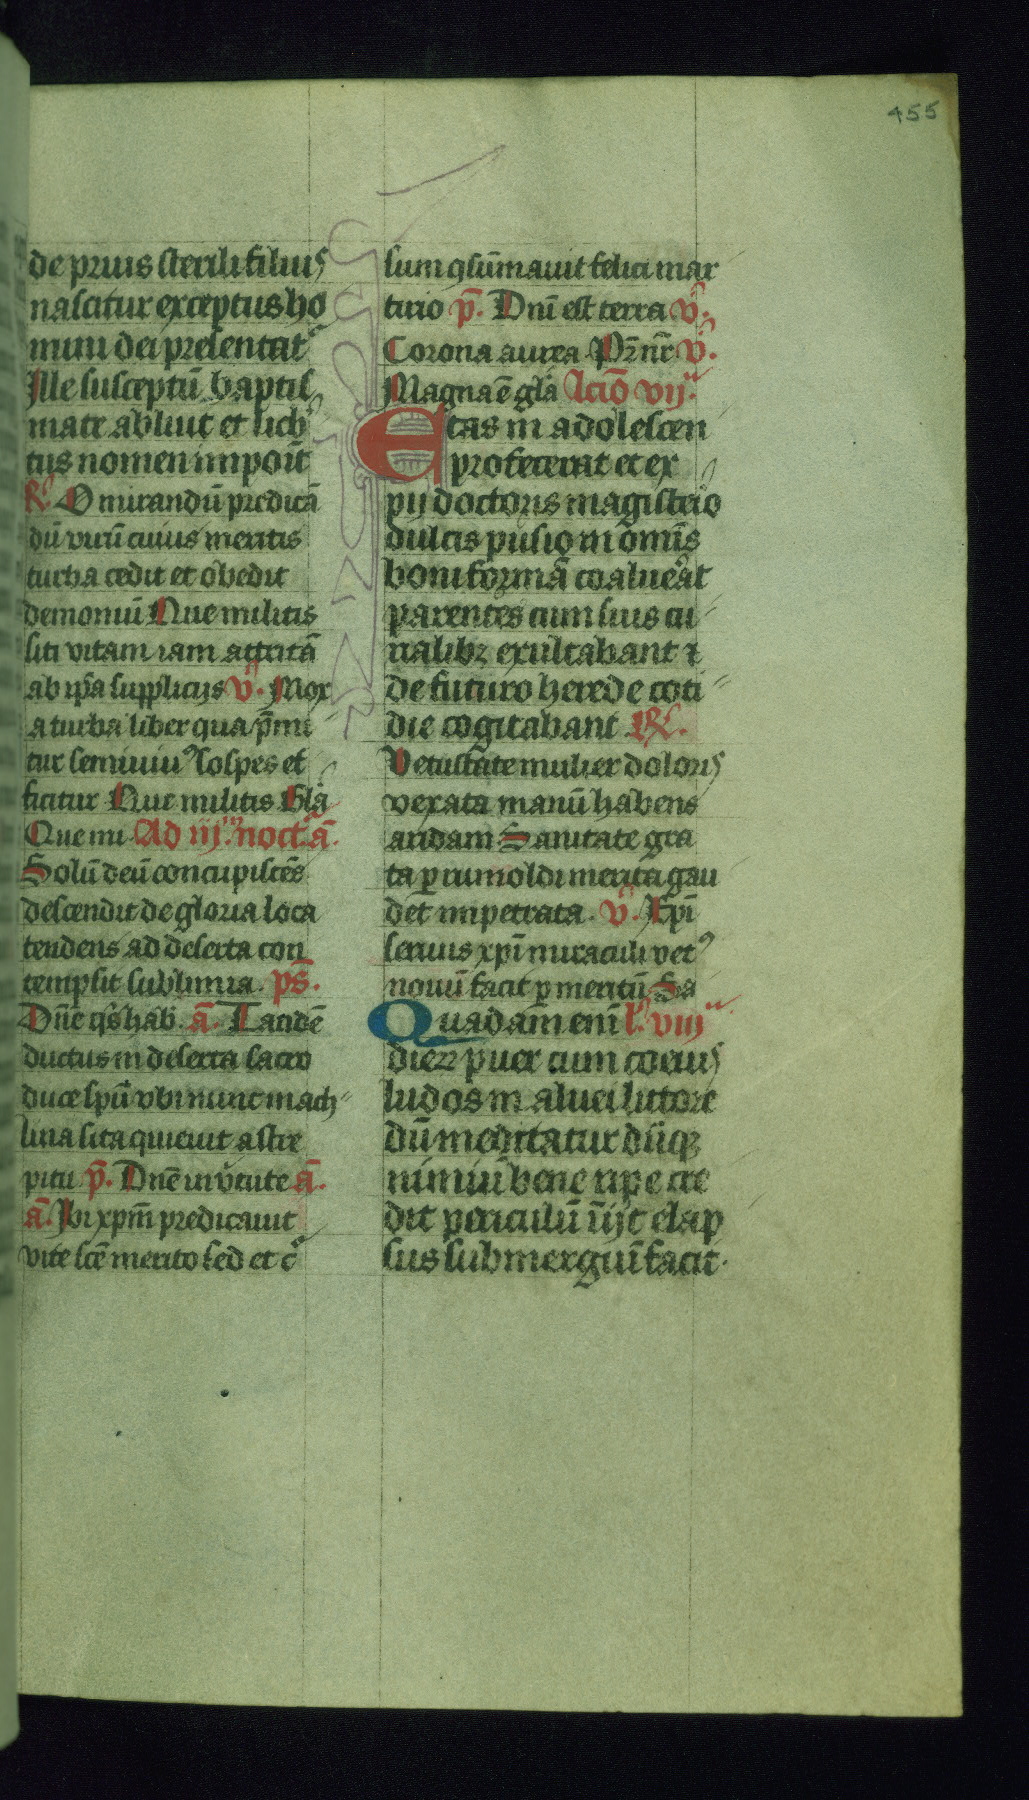 455
de prius sterili filius
nascitur exceptus ho
mini dei presentat᷑
Ille susceptū baptis
mate abluit et lieb
tus nomen imponit
R̷ O mirandū predicā
dū virū cuius meritis
turba cedit et obedit
demoniū Que militis
siti vitam iam attritā
ab ip̄a supplicijs v̄. Mox
a turba liber qua p̄mi
tur seminiuꝰ sospes ef
ficitur Que militis Glā
Que mi Ad iij. noct. ā.
Solū deū concupiscēs
descendit de gloria loca
tendens ad deserta con
tempsit sublimia. ps̄.
Dn̄e q̄s hab. ā. Tandē
ductus in deserta sacro
duce sp̄u vbi nunc mach
linia sita quieuit a stre
pitu p̄. Dn̄e in v̓tute ā.
ā. Ibi xp̄m predicauit
vite sc̄e merito sed et c̄
sum ꝯsūmauit felici mar
tirio p̄. Dn̄i est terra v̄.
Corona aurea Pr̄ nr̄ v̄.
Magna ē glā Lc̄io vij.
Etas in adolescen
profecerat et ex
pij doctoris magisterio
dulcis pusio in omīs
boni formā coaluerat
parentes cum suis cu
nalibꝫ exultabant ⁊
de futuro herede coti
die cogitabant R̷.
Vetustate mulier doloris
vexata manū habens
aridam Sanitate gra
ta p rumoldi merita gau
det impetrata. v̄. Xpī
seruus xpī miraculi vetꝰ
nouū facit p meritū Sa
Quadam enī l̄. viij
dierꝝ puer cum coeuis
ludos in aluei littore
dū meditatur dūqꝫ
nimiū bene ripe cre
dit periculū īijt elap
sus submergūī facit.